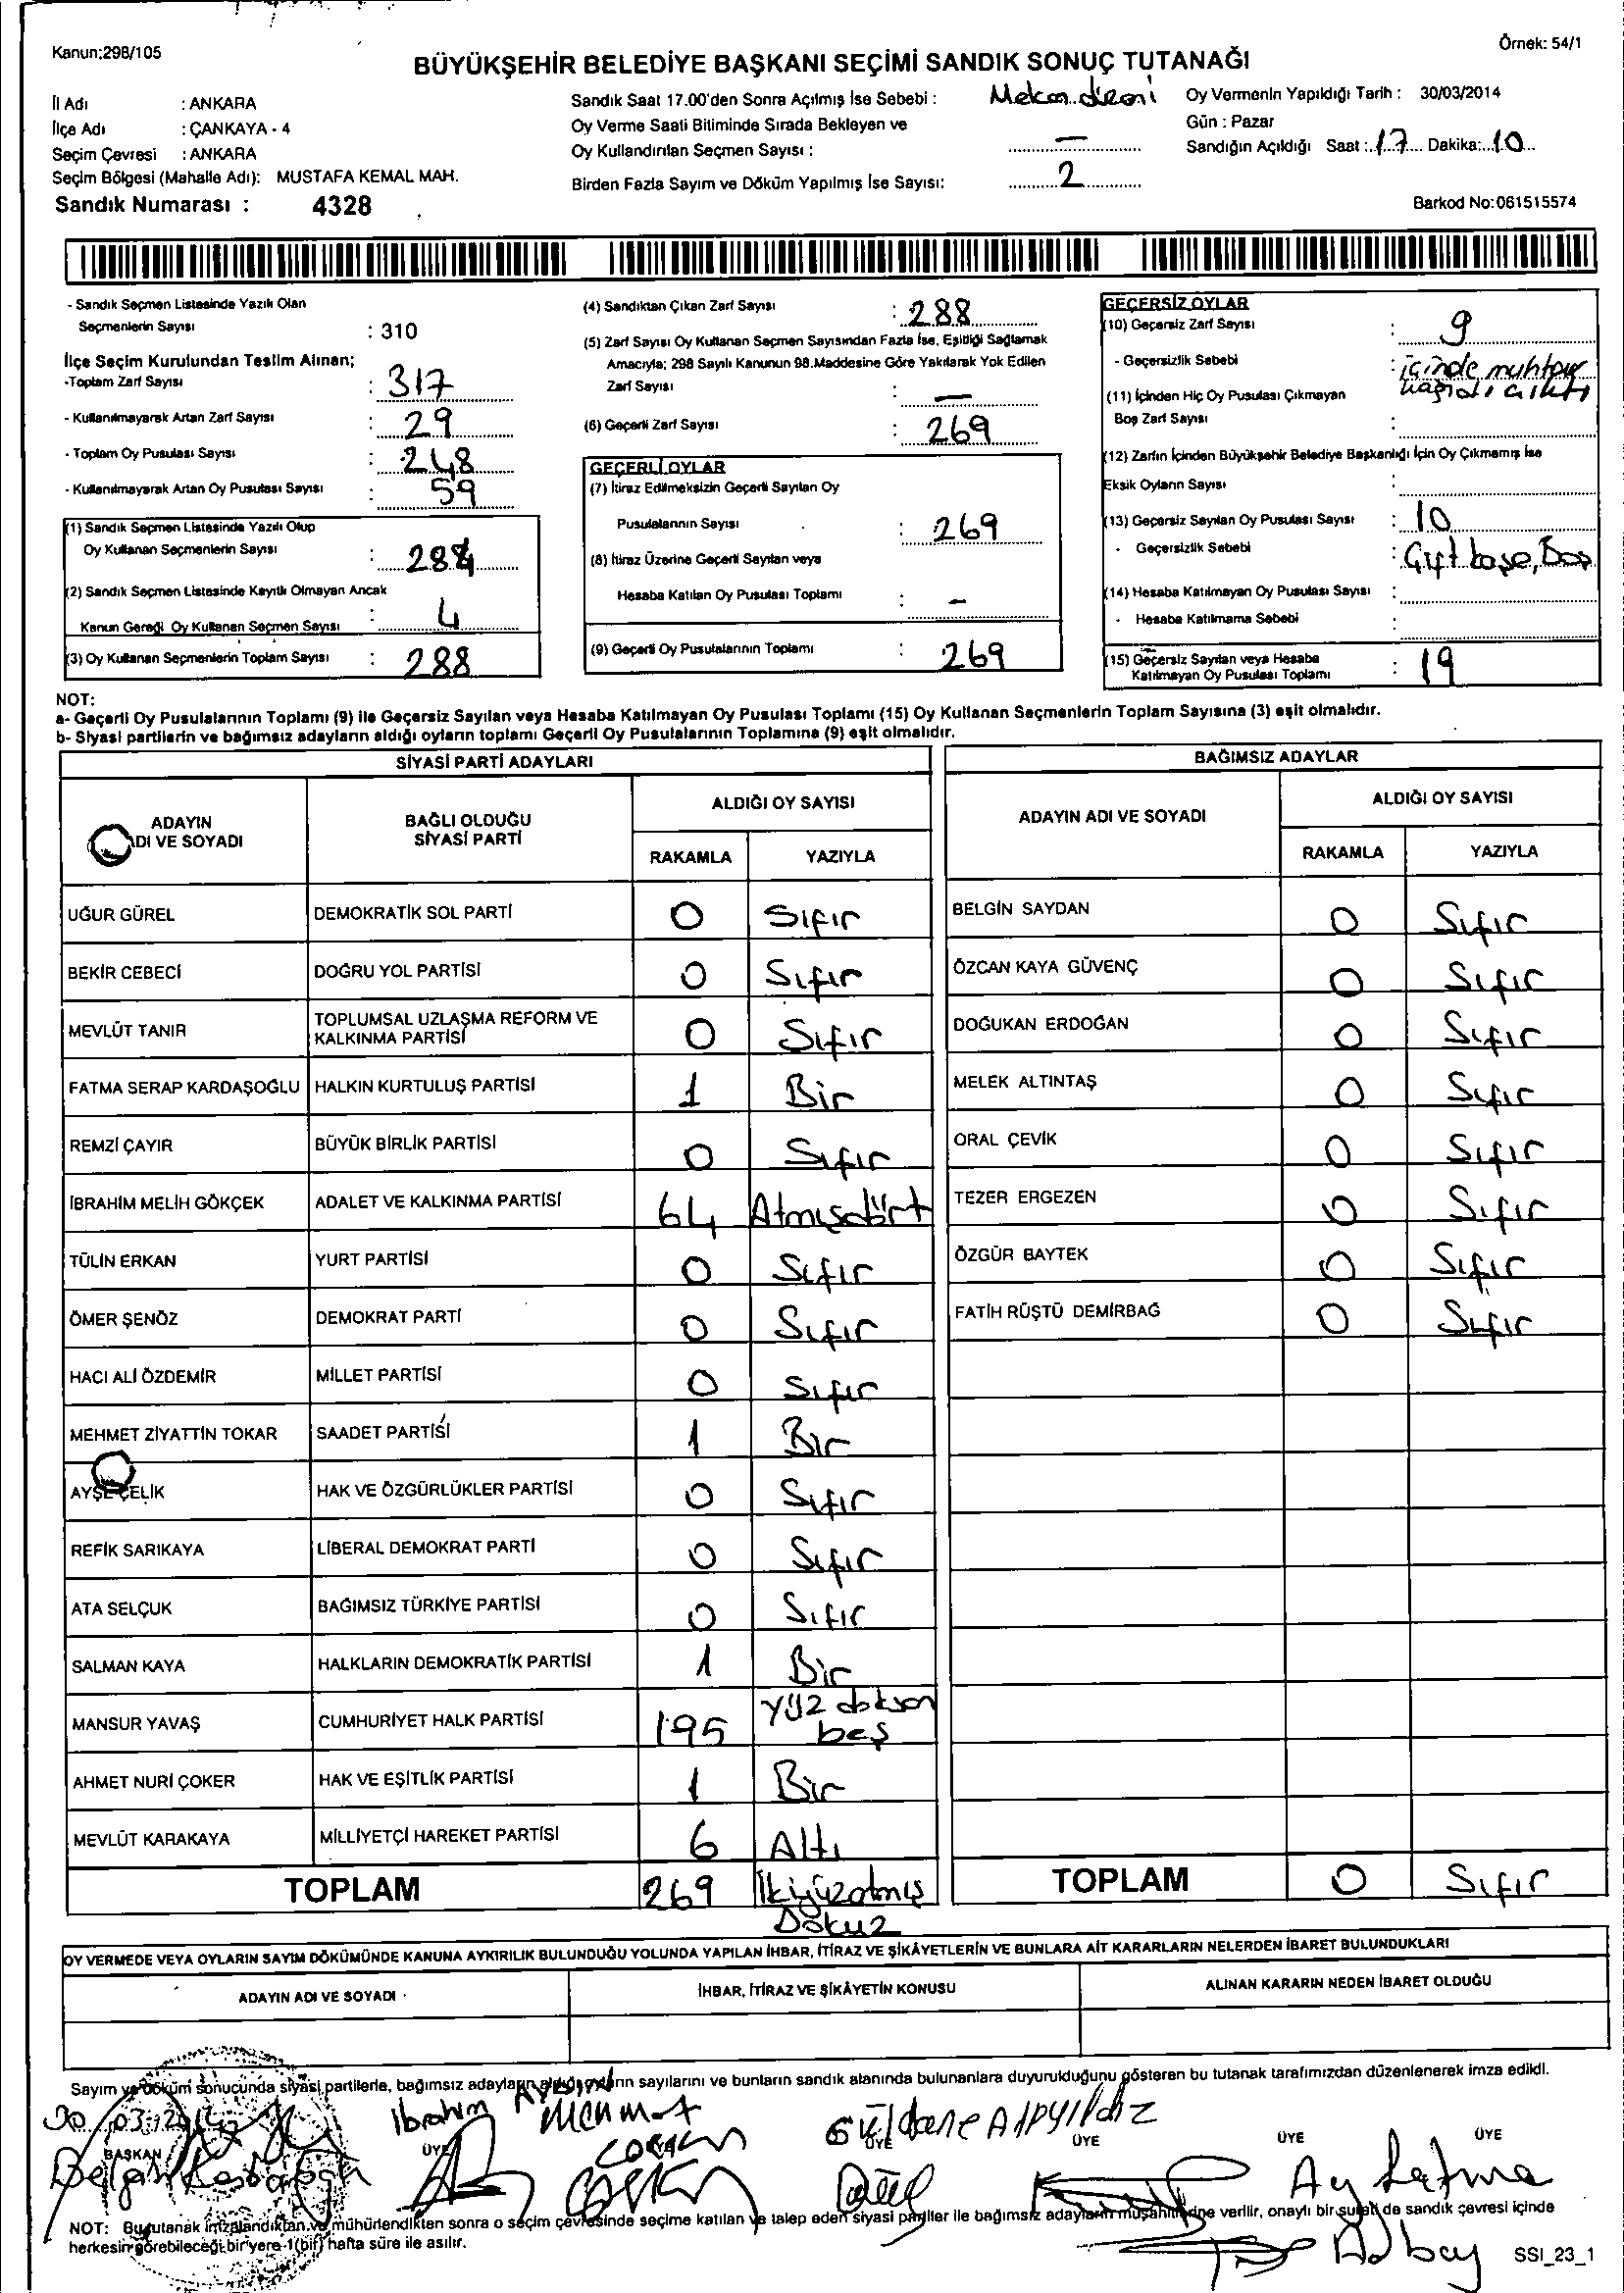 Kanun:298/105
Örnek: 54/1
BÜYÜKŞEHİR BELEDİYE BAŞKANI SEÇİMİ SANDIK SONUÇ TUTANAĞI
İl Adı : ANKARA
İlçe Adı : ÇANKAYA - 4
Seçim Çevresi : ANKARA
Seçim Bölgesi (Mahalle Adı): MUSTAFA KEMAL MAH.
Sandık Numarası : 4328
Sandık Saat 17.00'den Sonra Açılmış İse Sebebi :
Oy Verme Saati Bitiminde Sırada Bekleyen ve
Oy Kullandırılan Seçmen Sayısı : –
Birden Fazla Sayım ve Döküm Yapılmış İse Sayısı: 2
Oy Vermenin Yapıldığı Tarih : 30/03/2014
Gün : Pazar
Sandığın Açıldığı Saat : 17 Dakika: 10
Barkod No:061515574
- Sandık Seçmen Listesinde Yazılı Olan
Seçmenlerin Sayısı : 310
İlçe Seçim Kurulundan Teslim Alınan;
-Toplam Zarf Sayısı : 317
- Kullanılmayarak Artan Zarf Sayısı : 29
- Toplam Oy Pusulası Sayısı : 248
- Kullanılmayarak Artan Oy Pusulası Sayısı : 59
(1) Sandık Seçmen Listesinde Yazılı Olup
Oy Kullanan Seçmenlerin Sayısı : 284
(2) Sandık Seçmen Listesinde Kayıtlı Olmayan Ancak
Kanun Gereği Oy Kullanan Seçmen Sayısı : 4
(3) Oy Kullanan Seçmenlerin Toplam Sayısı : 288
(4) Sandıktan Çıkan Zarf Sayısı : 288
(5) Zarf Sayısı Oy Kullanan Seçmen Sayısından Fazla İse, Eşitliği Sağlamak
Amacıyla; 298 Sayılı Kanunun 98.Maddesine Göre Yakılarak Yok Edilen
Zarf Sayısı : –
(6) Geçerli Zarf Sayısı : 269
GEÇERLİ OYLAR
(7) İtiraz Edilmeksizin Geçerli Sayılan Oy
Pusulalarının Sayısı : 269
(8) İtiraz Üzerine Geçerli Sayılan veya
Hesaba Katılan Oy Pusulası Toplamı : –
(9) Geçerli Oy Pusulalarının Toplamı : 269
GEÇERSİZ OYLAR
(10) Geçersiz Zarf Sayısı : 9
- Geçersizlik Sebebi : içinde muhtar
kağıdı çıktı
(11) İçinden Hiç Oy Pusulası Çıkmayan
Boş Zarf Sayısı :
(12) Zarfın İçinden Büyükşehir Belediye Başkanlığı İçin Oy Çıkmamış İse
Eksik Oyların Sayısı :
(13) Geçersiz Sayılan Oy Pusulası Sayısı : 10
- Geçersizlik Sebebi : Çift kaşe, Boş
(14) Hesaba Katılmayan Oy Pusulası Sayısı :
- Hesaba Katılmama Sebebi :
(15) Geçersiz Sayılan veya Hesaba
Katılmayan Oy Pusulası Toplamı : 19
NOT:
a- Geçerli Oy Pusulalarının Toplamı (9) ile Geçersiz Sayılan veya Hesaba Katılmayan Oy Pusulası Toplamı (15) Oy Kullanan Seçmenlerin Toplam Sayısına (3) eşit olmalıdır.
b- Siyasi partilerin ve bağımsız adayların aldığı oyların toplamı Geçerli Oy Pusulalarının Toplamına (9) eşit olmalıdır.
SİYASİ PARTİ ADAYLARI
ADAYIN
ADI VE SOYADI
BAĞLI OLDUĞU
SİYASİ PARTİ
ALDIĞI OY SAYISI
RAKAMLA YAZIYLA
UĞUR GÜREL DEMOKRATİK SOL PARTİ 0 Sıfır
BEKİR CEBECİ DOĞRU YOL PARTİSİ 0 Sıfır
MEVLÜT TANIR TOPLUMSAL UZLAŞMA REFORM VE
KALKINMA PARTİSİ 0 Sıfır
FATMA SERAP KARDAŞOĞLU HALKIN KURTULUŞ PARTİSİ 1 Bir
REMZİ ÇAYIR BÜYÜK BİRLİK PARTİSİ 0 Sıfır
İBRAHİM MELİH GÖKÇEK ADALET VE KALKINMA PARTİSİ 64 Atmışdört
TÜLİN ERKAN YURT PARTİSİ 0 Sıfır
ÖMER ŞENÖZ DEMOKRAT PARTİ 0 Sıfır
HACI ALİ ÖZDEMİR MİLLET PARTİSİ 0 Sıfır
MEHMET ZİYATTİN TOKAR SAADET PARTİSİ 1 Bir
AYŞE ÇELİK HAK VE ÖZGÜRLÜKLER PARTİSİ 0 Sıfır
REFİK SARIKAYA LİBERAL DEMOKRAT PARTİ 0 Sıfır
ATA SELÇUK BAĞIMSIZ TÜRKİYE PARTİSİ 0 Sıfır
SALMAN KAYA HALKLARIN DEMOKRATİK PARTİSİ 1 Bir
MANSUR YAVAŞ CUMHURİYET HALK PARTİSİ 195 Yüz doksan
beş
AHMET NURİ ÇOKER HAK VE EŞİTLİK PARTİSİ 1 Bir
MEVLÜT KARAKAYA MİLLİYETÇİ HAREKET PARTİSİ 6 Altı
TOPLAM 269 İkiyüzatmış
Dokuz
BAĞIMSIZ ADAYLAR
ADAYIN ADI VE SOYADI
ALDIĞI OY SAYISI
RAKAMLA YAZIYLA
BELGİN SAYDAN 0 Sıfır
ÖZCAN KAYA GÜVENÇ 0 Sıfır
DOĞUKAN ERDOĞAN 0 Sıfır
MELEK ALTINTAŞ 0 Sıfır
ORAL ÇEVİK 0 Sıfır
TEZER ERGEZEN 0 Sıfır
ÖZGÜR BAYTEK 0 Sıfır
FATİH RÜŞTÜ DEMİRBAĞ 0 Sıfır
TOPLAM 0 Sıfır
OY VERMEDE VEYA OYLARIN SAYIM DÖKÜMÜNDE KANUNA AYKIRILIK BULUNDUĞU YOLUNDA YAPILAN İHBAR, İTİRAZ VE ŞİKÂYETLERİN VE BUNLARA AİT KARARLARIN NELERDEN İBARET BULUNDUKLARI
ADAYIN ADI VE SOYADI
İHBAR, İTİRAZ VE ŞİKÂYETİN KONUSU
ALINAN KARARIN NEDEN İBARET OLDUĞU
Sayım ve döküm sonucunda siyasi partilerle, bağımsız adayların aldığı oyların sayılarını ve bunların sandık alanında bulunanlara duyurulduğunu gösteren bu tutanak tarafımızdan düzenlenerek imza edildi.
30/03/2014
BAŞKAN
İbrahim AYDIN
ÜYE
Mehmet
ÜYE
Güldane Alpyıldız
ÜYE
ÜYE
ÜYE
Ay Fatma
NOT: Bu tutanak imzalandıktan ve mühürlendikten sonra o seçim çevresinde seçime katılan ve talep eden siyasi partiler ile bağımsız adayların müşahitlerine verilir, onaylı bir sureti de sandık çevresi içinde
herkesin görebileceği bir yere 1(bir) hafta süre ile asılır.
SSI_23_1